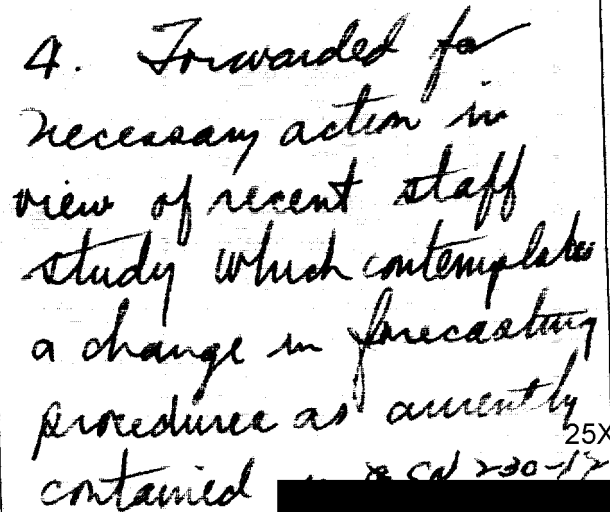 4. Forwarded for
necessary action in
view of recent staff
study which contemplates
a change in forecasting
procedures as currently
25X
contained 230-12